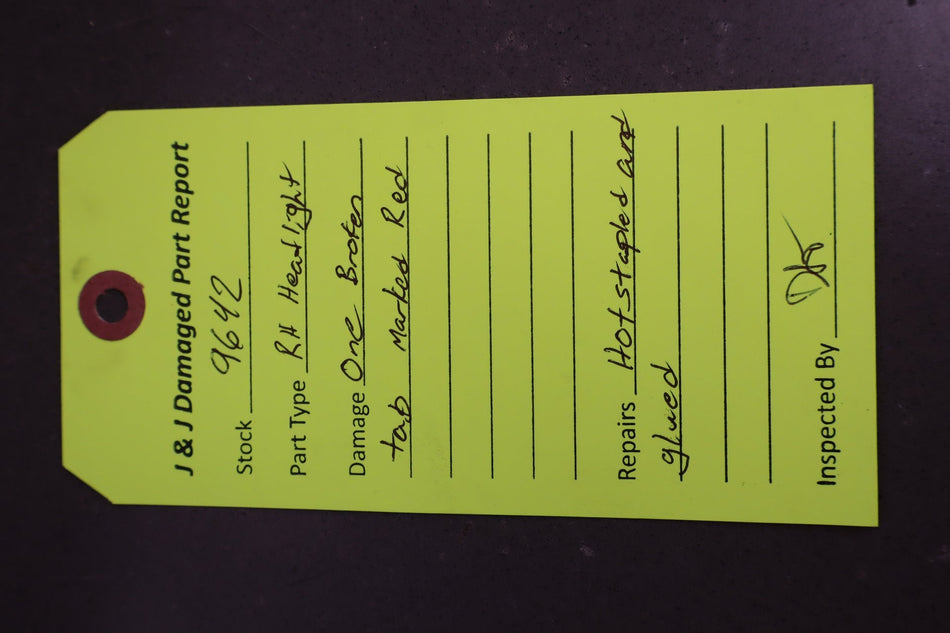 J & J Damaged Part Report
Stock 9642
Part Type RH Headlight
Damage One Broken
tab Marked Red
Repairs Hot stapled and
glued
Inspected By